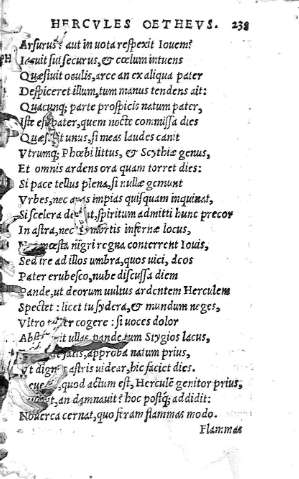 HERCVLES OETHEVS. 238
Arsurus? aut in uota respexit Iouem?
Iacuit sui securus, & cœlum intuens
Quæsiuit oculis, arce an ex aliqua pater
Despiceret illum, tum manus tendens ait:
Quacunq; parte prospicis natum pater,
Iste est pater, quem nocte commissa dies
Quæsiuit unus, si meas laudes canit
Vtrumq; Phœbi littus, & Scythiæ genus,
Et omnis ardens ora quam torret dies:
Si pace tellus plena, si nullæ gemunt
Vrbes, nec aras impias quisquam inquinat,
Si scelera desunt, spiritum admitti hunc precor
In astra, nec mortis infernæ locus,
nigri regna conterrent Iouis,
Sed ire ad illos umbra, quos uici, deos
Pater erubesco, nube discussa diem
Pande, ut deorum uultus ardentem Herculem
Spectet: licet tu sydera, & mundum neges,
Vltro pater cogere: si uoces dolor
ullas, pande tum Stygios lacus,
fatis, approba natum prius,
Vt dignus astris uidear, hic faciet dies.
quod actum est, Herculē genitor prius,
an damnauit? hoc postq; addidit:
Nouerca cernat, quo feram flammas modo.
Flammas